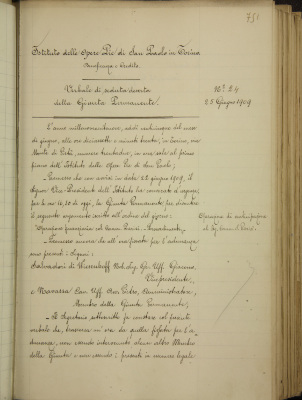 751
Istituto delle Opere Pie di San Paolo in Torino
Beneficenza e Credito
Verbale di seduta deserta
della Giunta Permanente.
N.° 24
25 Giugno 1909
L'anno millenovecentonove, addì venticinque del mese
di giugno, alle ore diciassette e minuti trenta, in Torino, via
Monte di Pietà, numero trentadue, in una sala al primo
piano dell'Istituto delle Opere Pie di San Paolo;
Premesso che con avviso in data 22 giugno 1909, il
Signor Vice Presidente dell'Istituto ha convocato d'urgenza,
per le ore 17,30 di oggi, la Giunta Permanente, per discutere
il seguente argomento scritto all'ordine del giorno:
Operazione
Premesso ancora che all'ora fissata per l'adunanza
sono presenti i Signori:
di Wiesenhoff Nob. Avv. Gr. Uff. Giacomo,
Vicepresidente,
e Cav. Uff. Avv. Pietro, Amministratore,
Membro della Giunta Permanente;
Il Segretario sottoscritto fa constare col presente
verbale che, trascorsa un'ora da quella fissata per l'a-
dunanza, non essendo intervenuto alcun altro Membro
della Giunta e non essendo i presenti in numero legale